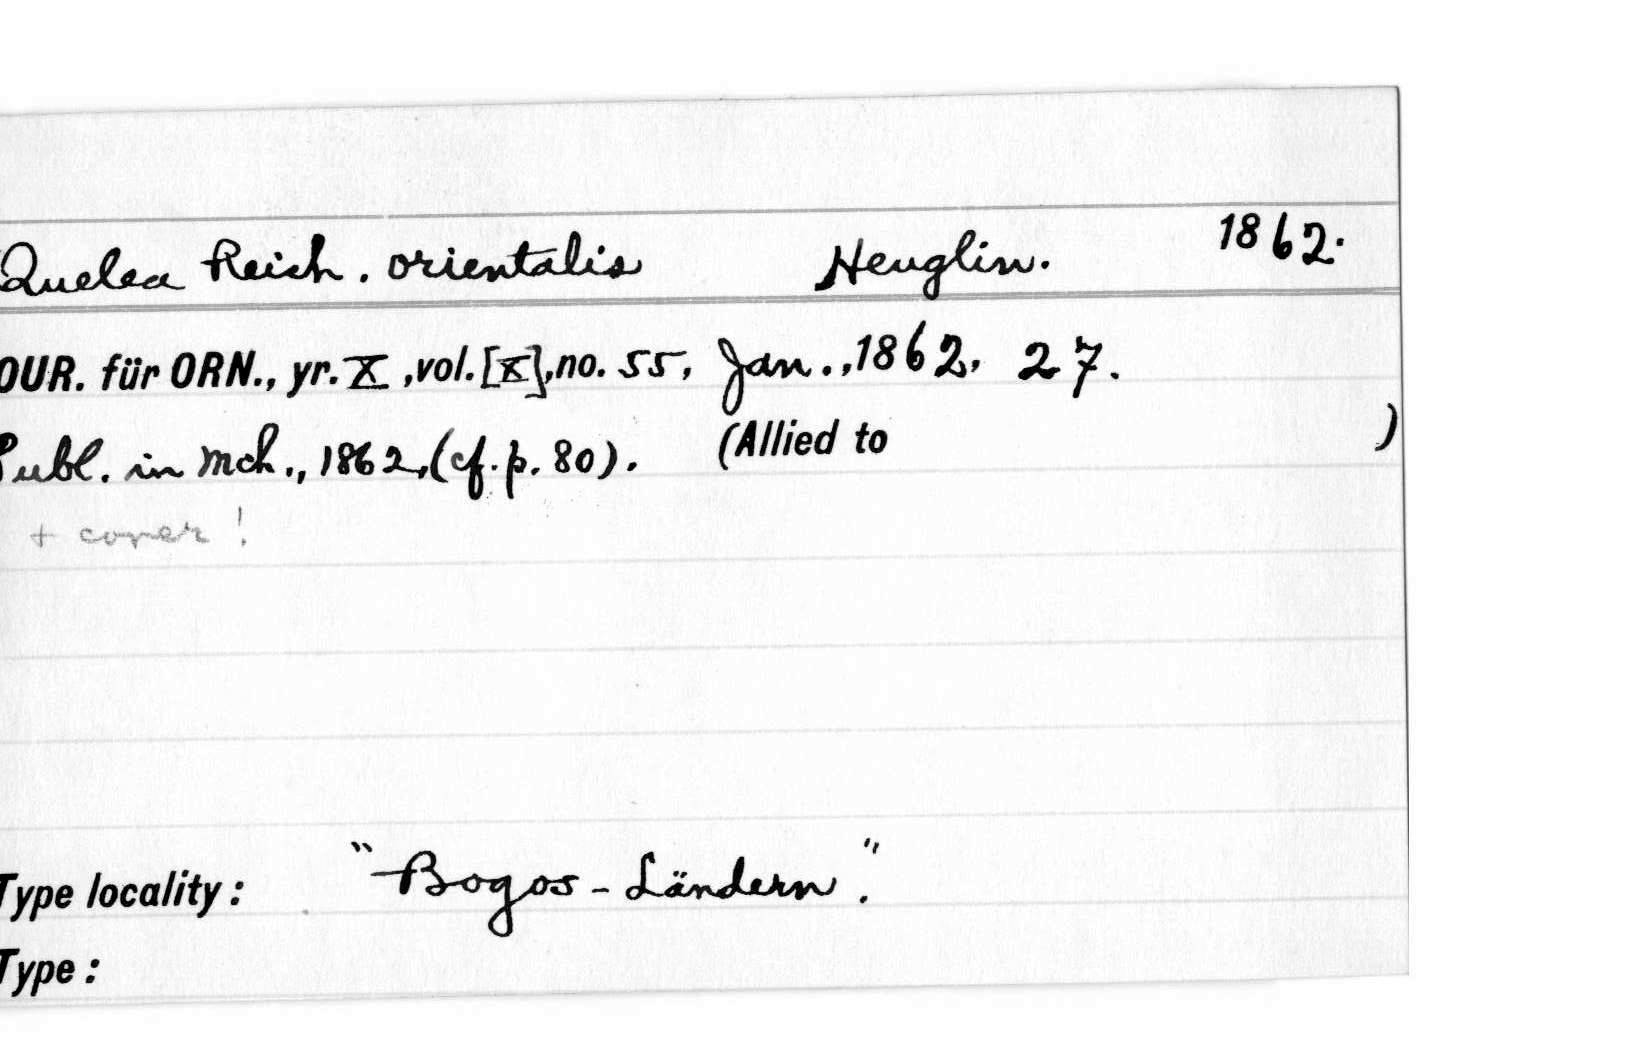 Quelea Reich. orientalis Heuglin. 1862.
OUR. für ORN., yr. X, vol. [X], no. 55, Jan., 1862, 27.
Publ. in Mch., 1862, (cf. p. 80). (Allied to )
+ cover!
Type locality: "Bogos-Ländern."
Type: